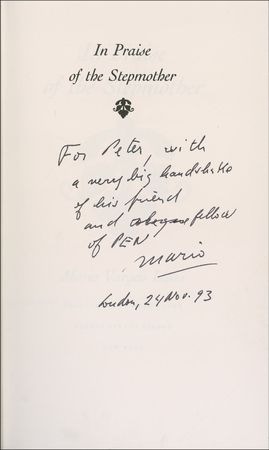 In Praise
of the Stepmother
For Peter, with
a very big handshake
of his friend
and fellow
of PEN
Mario
London, 24 Nov. 93